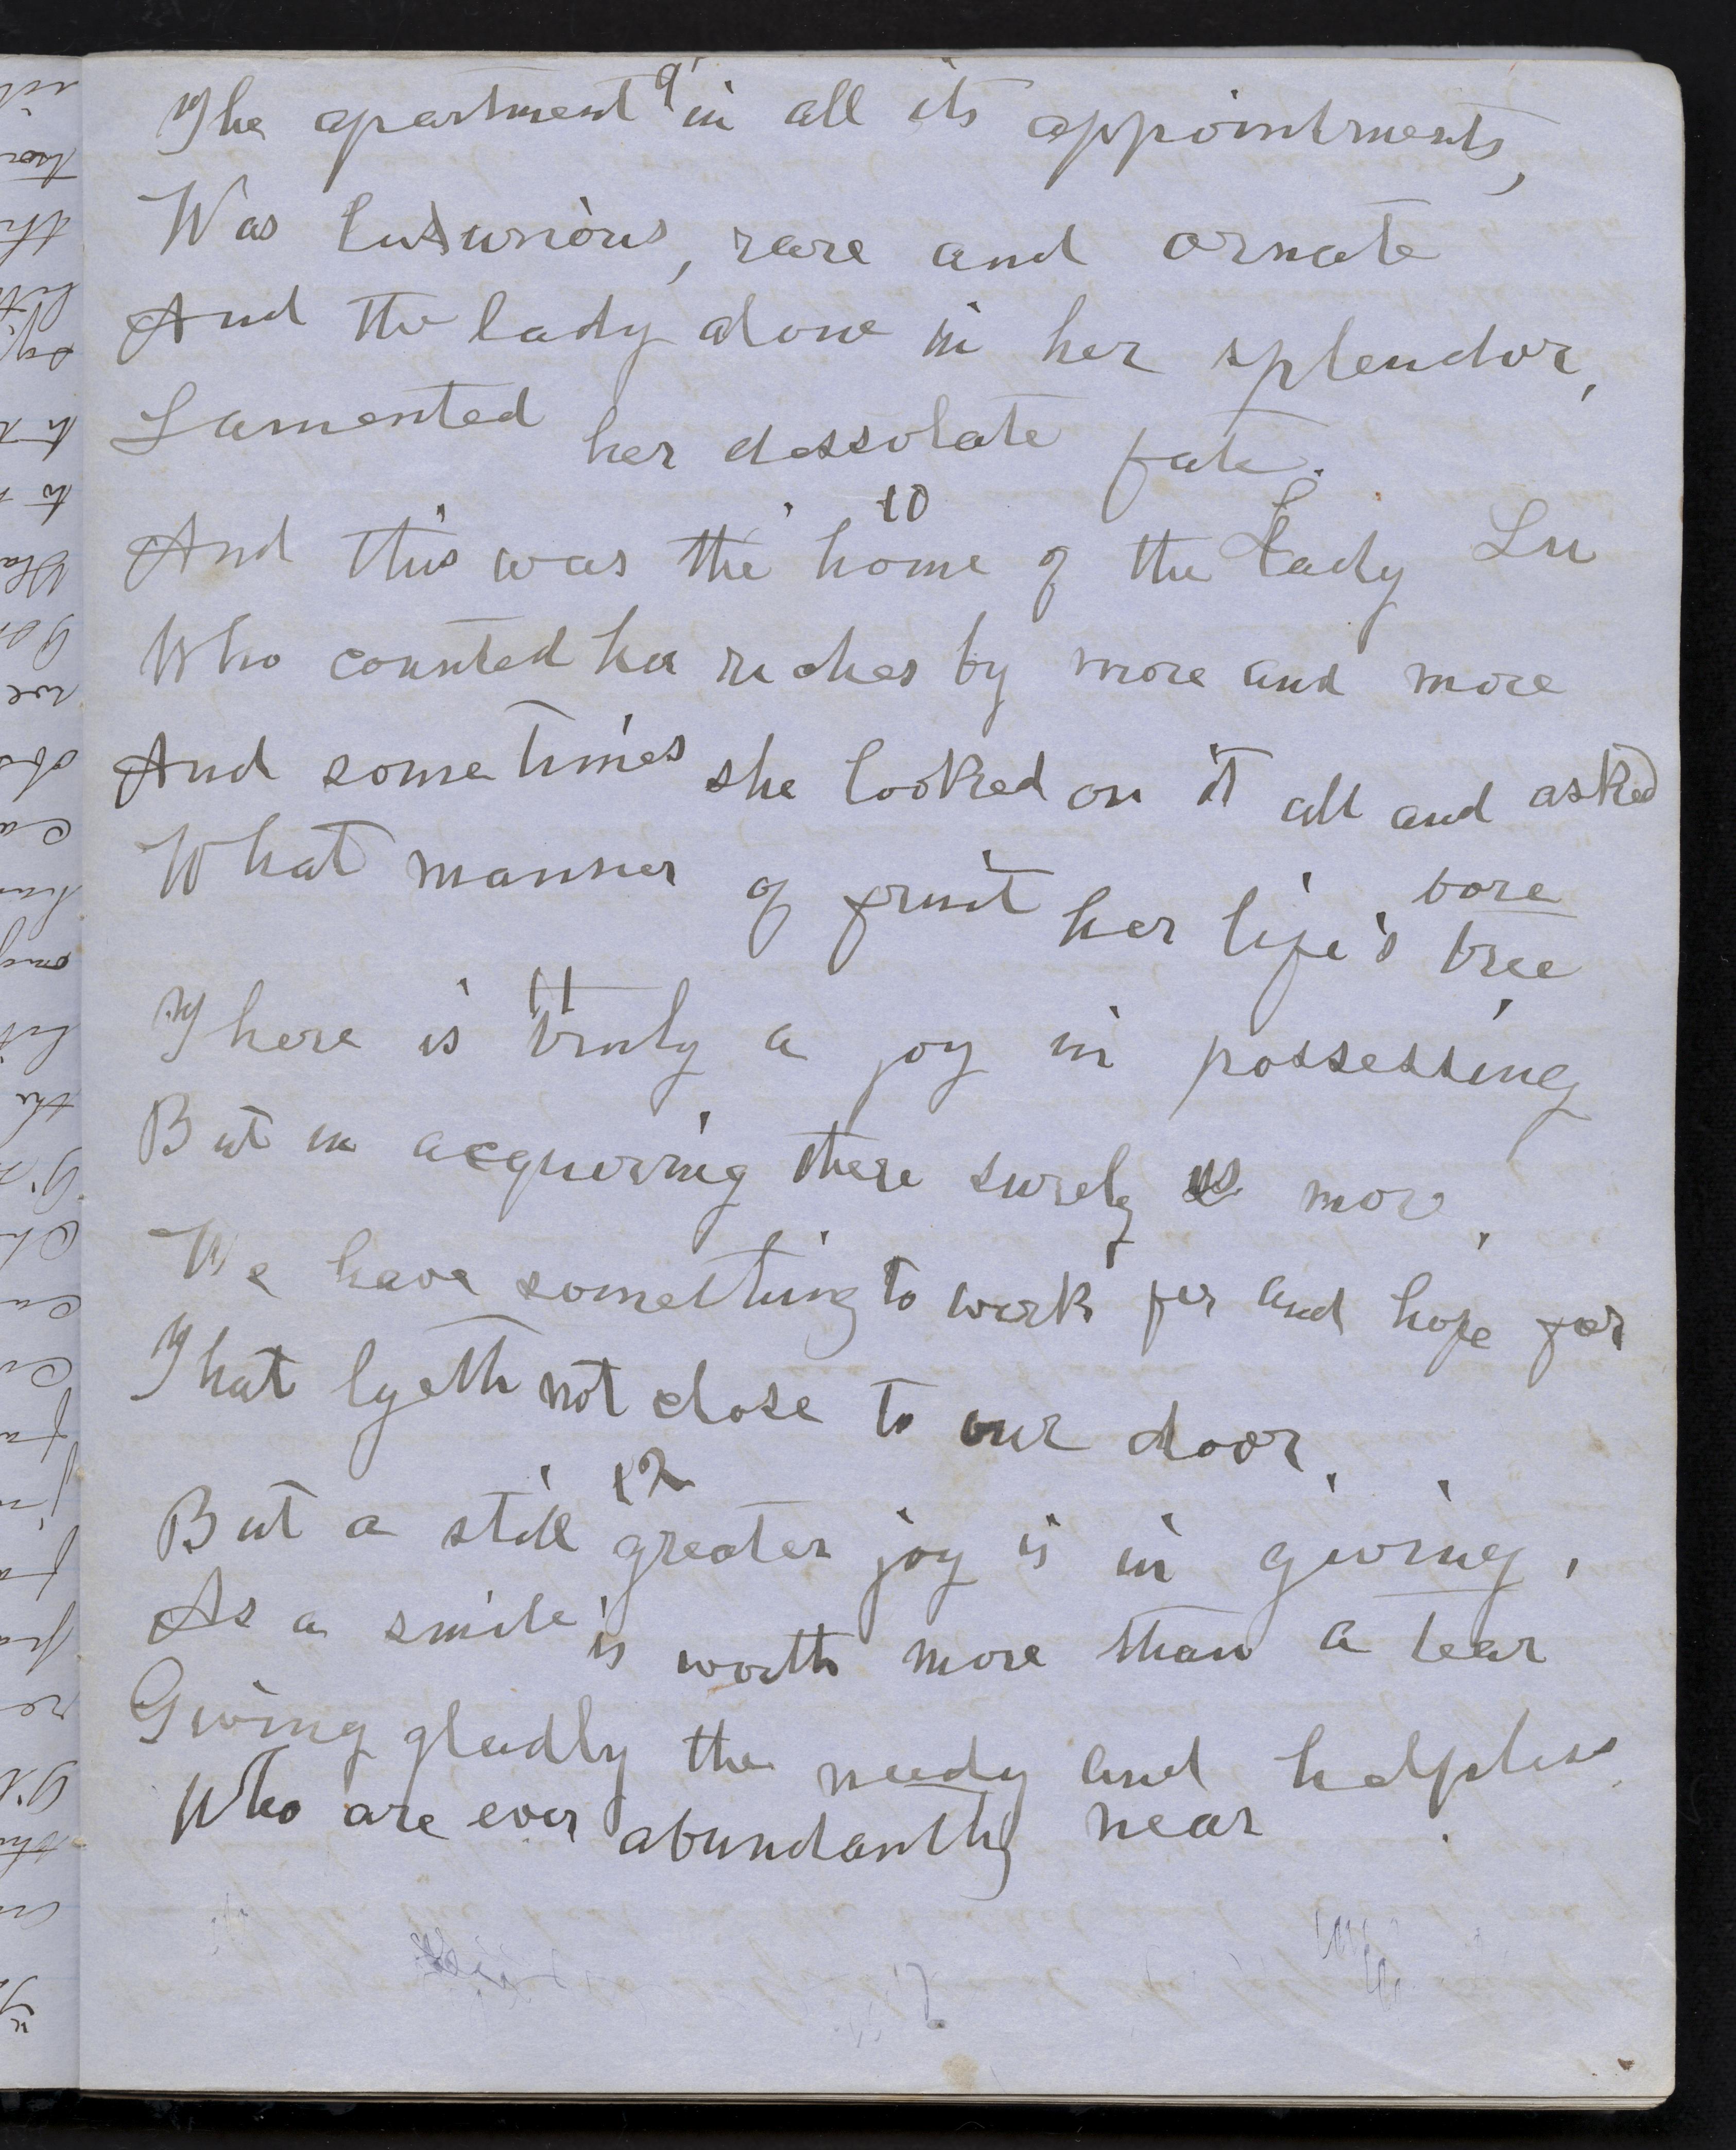 9
The apartment in all its appointments,
Was luxurious, rare and ornate
And the lady alone in her splendor,
Lamented her dessolate fate.
10
And this was the home of the Lady Lu
Who counted her riches by more and more
And sometimes she looked on it all and asked
What manner of fruit her life's tree bore
11
There is truly a joy in possessing
But in acquiring there surely is more.
We have something to work for and hope for
That lyeth not close to our door.
12
But a still greater joy is in giving,
As a smile is worth more than a tear
Giving gladly the needy and helpless
Who are ever abundantly near.